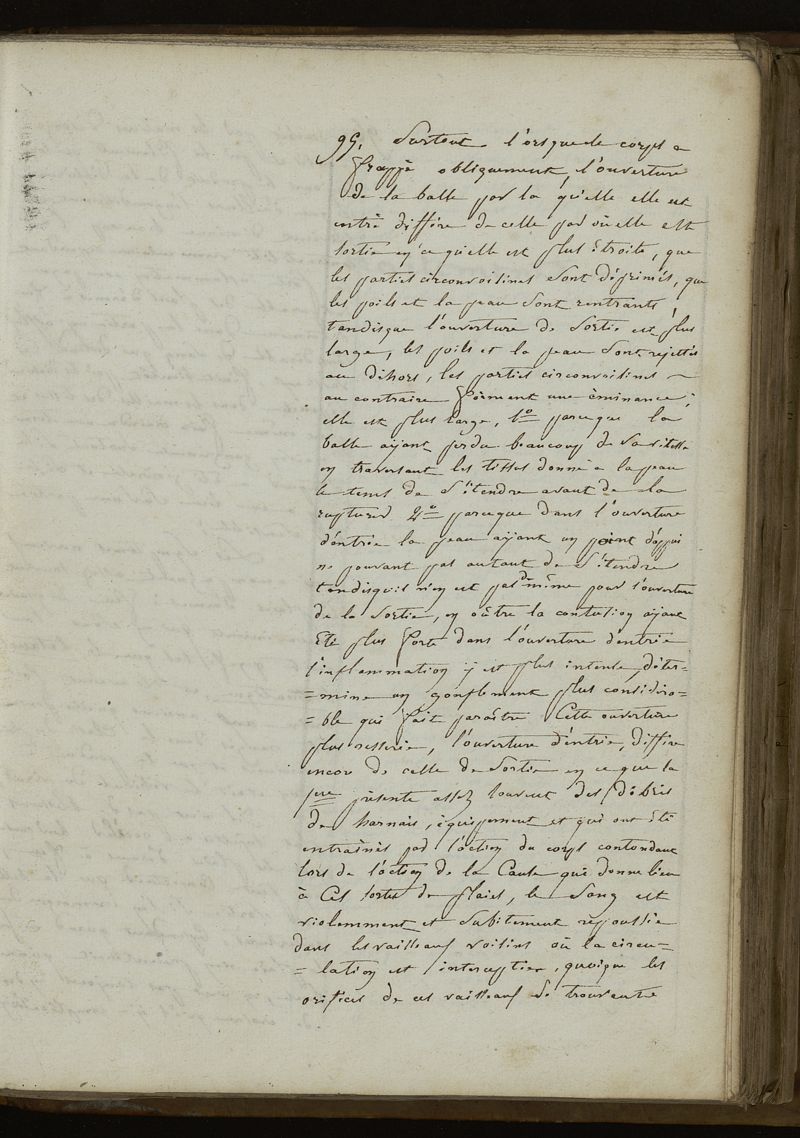 99. Surtout l'orsque le corps a
frappé obliquement, l'ouverture
de la balle par la qu'elle elle est
entré différe de celle par où elle est
sortie en ce qu'elle est plus étroite, que
les parties circonvoisines sont déprimés, que
les poils et la peau sont rentrants,
tandisque l'ouverture de sortie est plus
large, les poils et la peau sont rejettés
au dehors, les parties circonvoisines ~
au contraire forment une éminance;
elle est plus large, 1o parceque la
balle ayant perdu beaucoup de sa vitesse
en traversant les tisses donne a la peau
le tems de s'étendre avant de la
rupturer 2o parceque dans l'ouverture
d'entrée la peau ayant un point d'appui
ne pouvant pas autant de s'étendre
tandisqu'il n'en est pas de même pour l'ouverture
de la sortie, en oûtre la contusion ayant
été plus forte dans l'ouverture d'entrée
l'inflammation y est plus intense, déter-
=mine un gonflement plus considéra-
=ble qui fait paraître cette ouverture
plus resserée, l'ouverture d'entrée, différe
encore de celle de sortie en ce que la
pre présente assez souvent des débris
de harnais, équippement et qui ont été
entrainés par l'action du corps contondant
lors de l'action de la cause qui donne lieu
à ces sortes de plaies, le sang est
violemment et subitement repoussée
dans les vaisseaux voisins où la circu-=
=lation est interceptée, quoique les
orifices de ces vaisseaux se trouvent